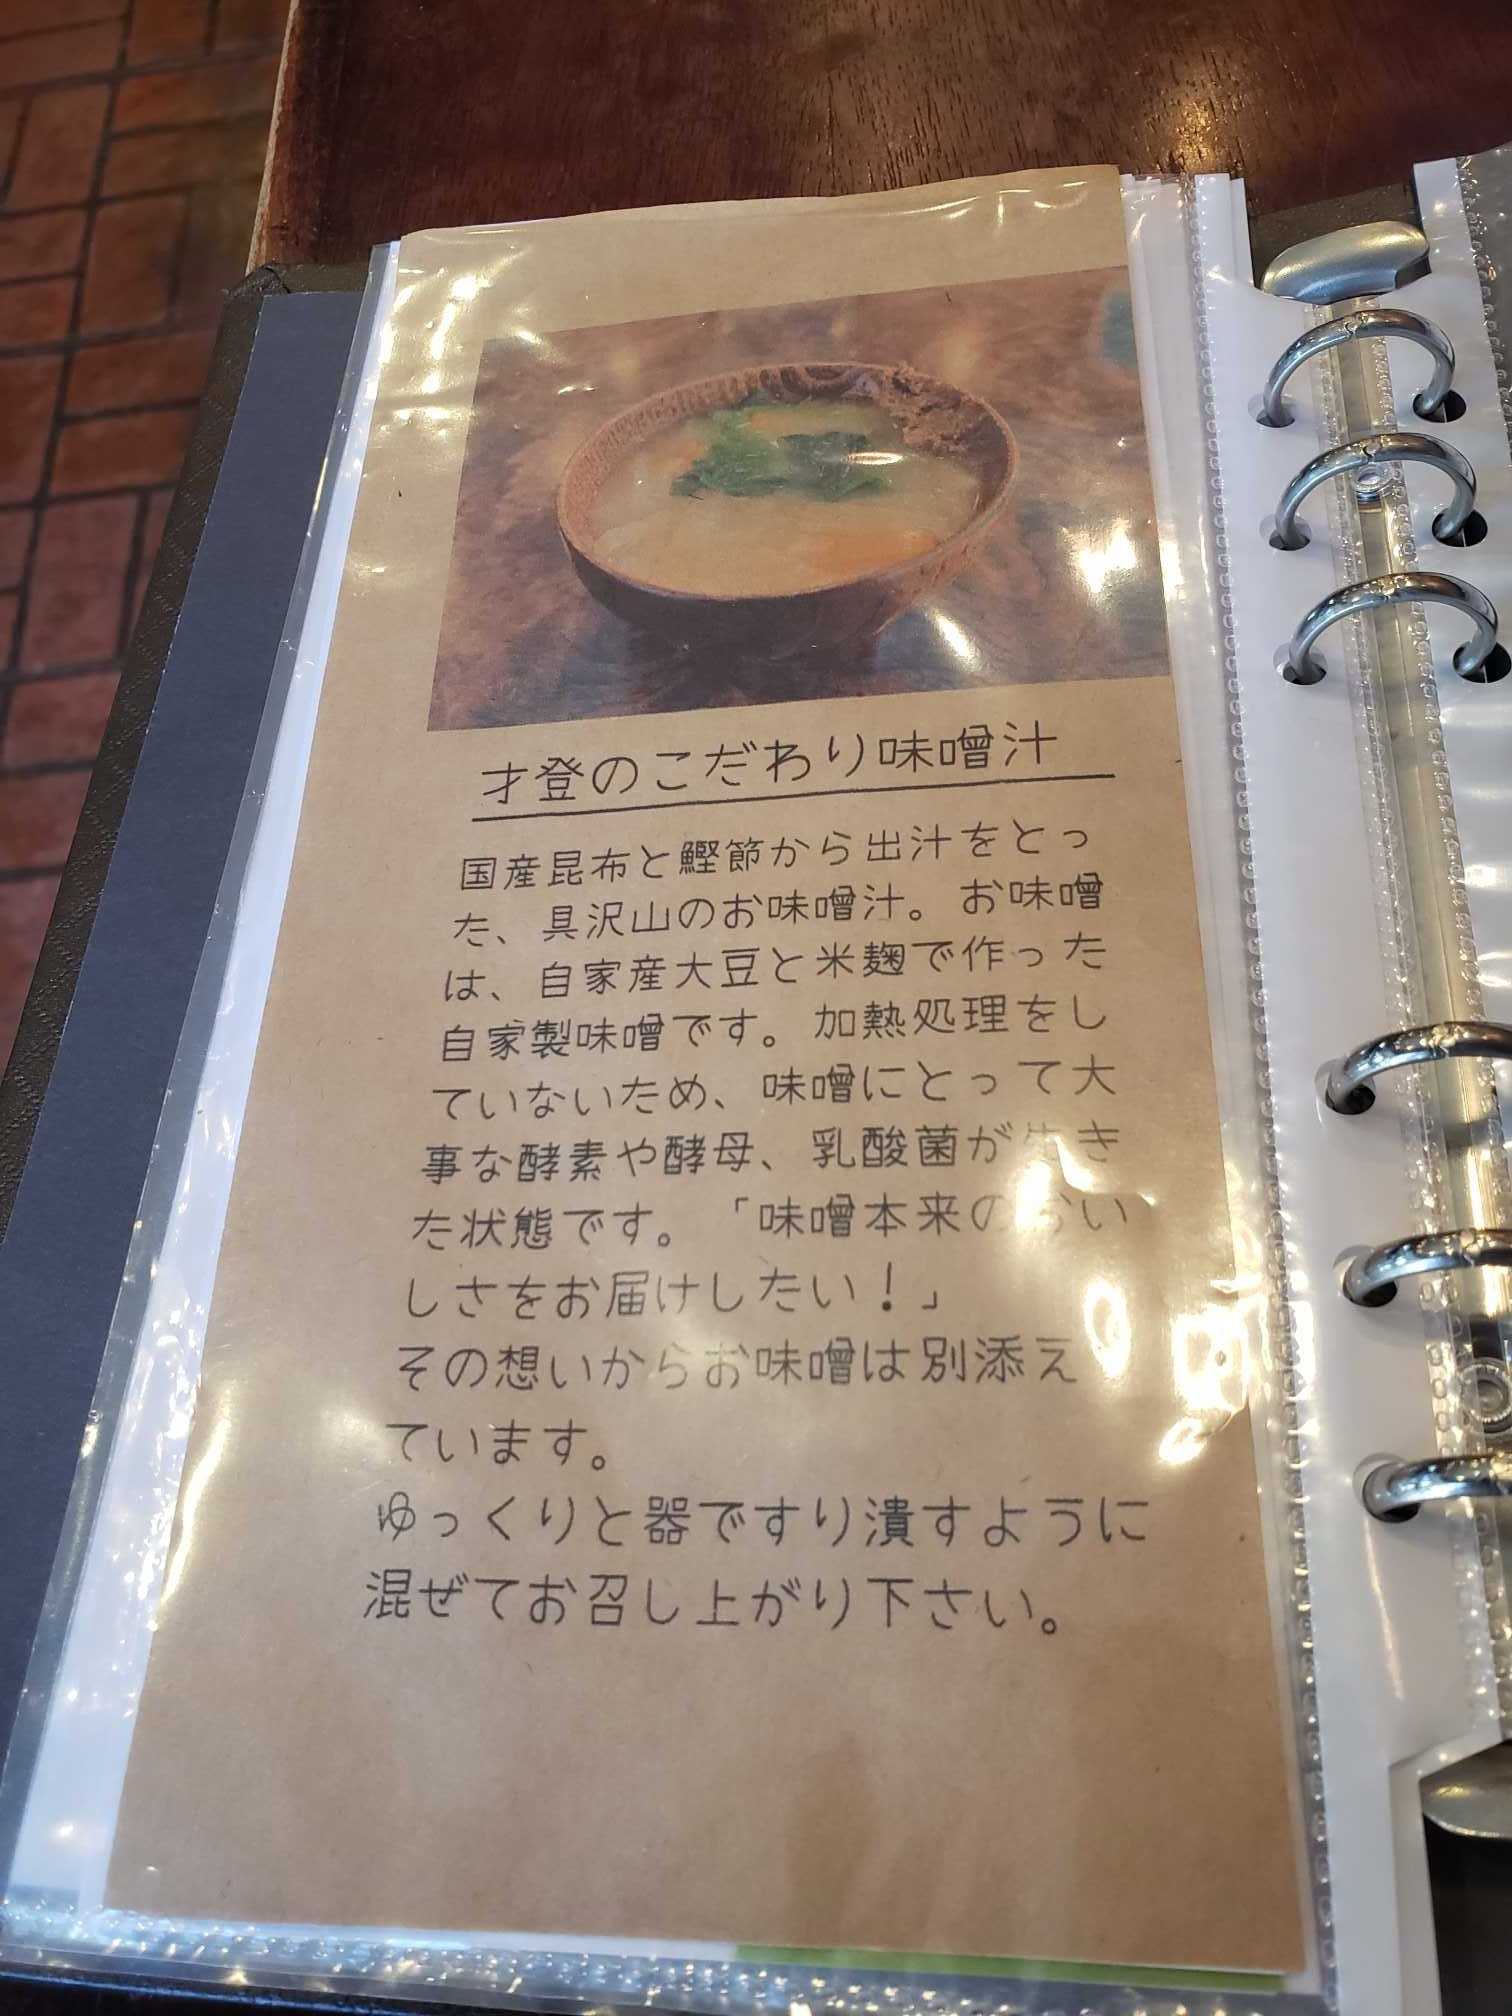 才登のこだわり味噌汁
国産昆布と鰹節から出汁をとっ
た、具沢山のお味噌汁。お味噌
は、自家産大豆と米麹で作った
自家製味噌です。加熱処理をし
ていないため、味噌にとって大
事な酵素や酵母、乳酸菌が生き
た状態です。「味噌本来のおい
しさをお届けしたい！」
その想いからお味噌は別添え
ています。
ゆっくりと器ですり潰すように
混ぜてお召し上がり下さい。